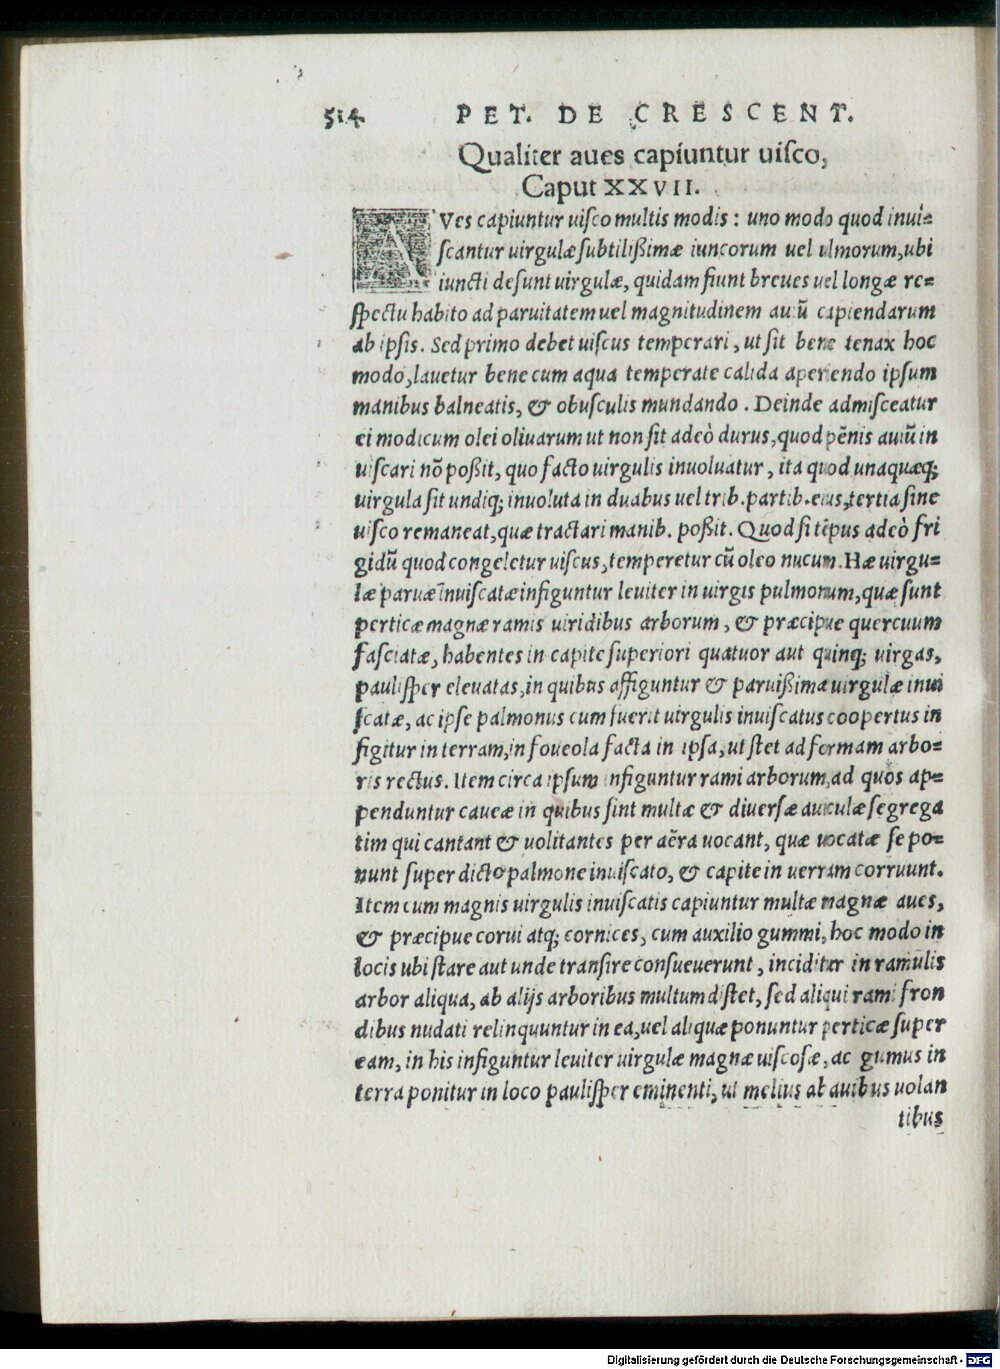 514. PET. DE CRESCENT.
Qualiter aues capiuntur uisco,
Caput XXVII.
AVes capiuntur uisco multis modis : uno modo quod inui=
scantur uirgulæ subtilißimæ iuncorum uel ulmorum, ubi
iuncti desunt uirgulæ, quidam fiunt breues uel longæ re=
spectu habito ad paruitatem uel magnitudinem auiū capiendarum
ab ipsis. Sed primo debet uiscus temperari, ut sit bene tenax hoc
modo, lauetur bene cum aqua temperate calida aperiendo ipsum
manibus balneatis, & obusculis mundando. Deinde admisceatur
ei modicum olei oliuarum ut non sit adeò durus, quod pēnis auiū in
uiscari nō poßit, quo facto uirgulis inuoluatur, ita quod unaquæq;
uirgula sit undiq; inuoluta in duabus uel trib. partib. eius, tertia sine
uisco remaneat, quæ tractari manib. poßit. Quod si tēpus adeò fri
gidū quod congeletur uiscus, temperetur cū oleo nucum. Hæ uirgu=
læ paruæ inuiscatæ infiguntur leuiter in uirgis pulmonum, quæ sunt
perticæ magnæ ramis uiridibus arborum, & præcipue quercuum
fasciatæ, habentes in capite superiori quatuor aut quinq; uirgas,
paulisper eleuatas, in quibus affiguntur & paruißimæ uirgulæ inui
scatæ, ac ipse palmonus cum fuerit uirgulis inuiscatus coopertus in
figitur in terram, in foueola facta in ipsa, ut stet ad formam arbo=
ris rectus. Item circa ipsum infiguntur rami arborum, ad quos ap=
penduntur caueæ in quibus sint multæ & diuersæ auiculæ segrega
tim qui cantant & uolitantes per aëra uocant, quæ uocatæ se po=
nunt super dicto palmone inuiscato, & capite in uerram corruunt.
Item cum magnis uirgulis inuiscatis capiuntur multæ magnæ aues,
& præcipue corui atq; cornices, cum auxilio gummi, hoc modo in
locis ubi stare aut unde transire consueuerunt, inciditur in ramulis
arbor aliqua, ab alijs arboribus multum distet, sed aliqui rami fron
dibus nudati relinquuntur in ea, uel aliquæ ponuntur perticæ super
eam, in his infiguntur leuiter uirgulæ magnæ uiscosæ, ac gumus in
terra ponitur in loco paulisper eminenti, ut melius ab auibus uolan
tibus
Digitalisierung gefördert durch die Deutsche Forschungsgemeinschaft - DFG